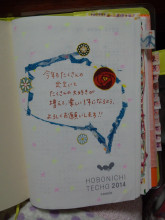 今年もたくさんの
出会いと
たくさんの大好きが
増えて、楽しい1年になるよう、
よろしくお願いします!!
HOBONICHI
TECHO 2014